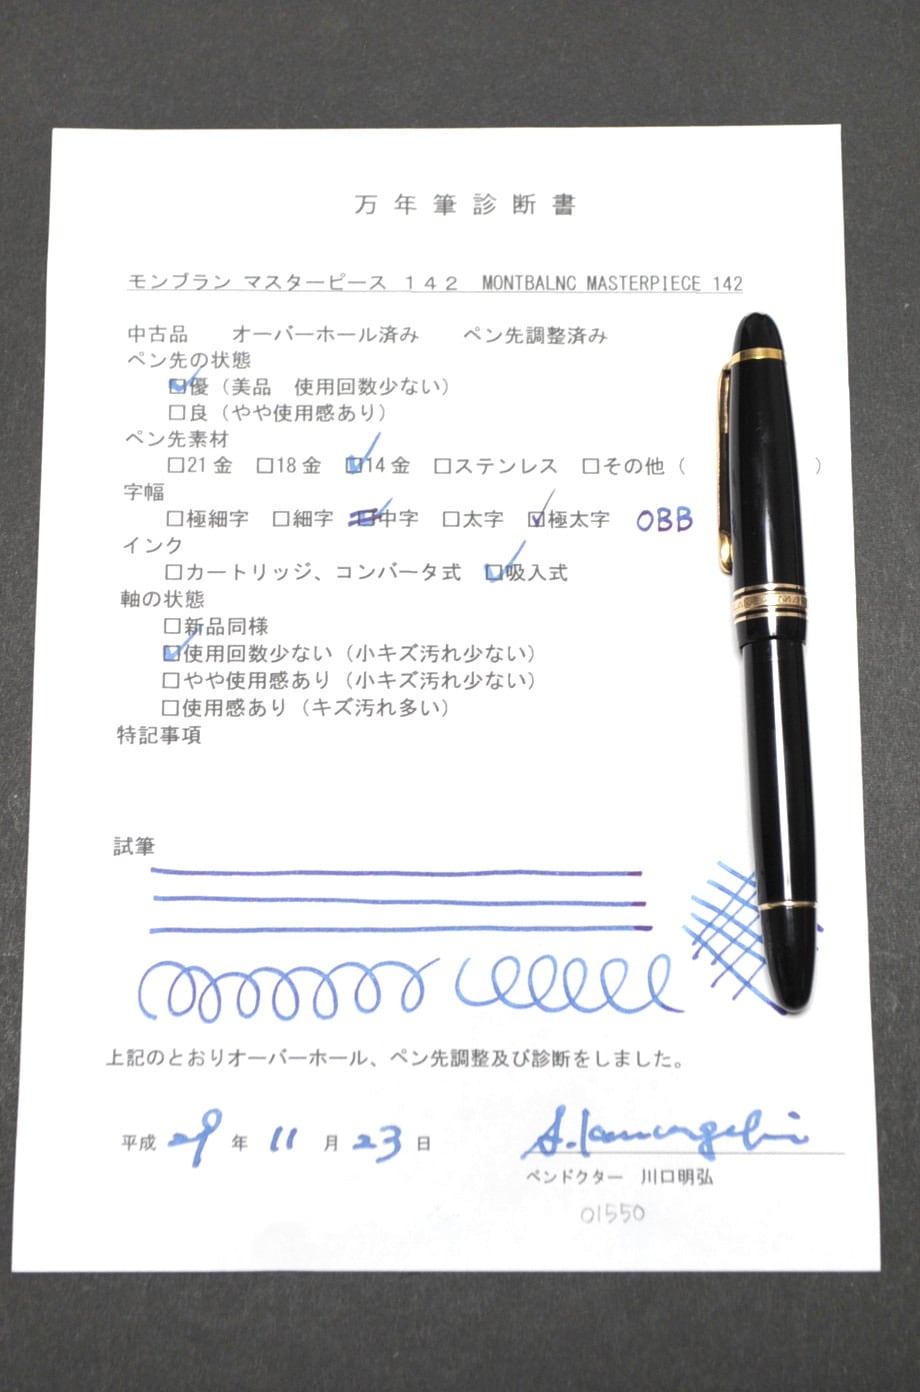 万年筆診断書
モンブラン マスターピース 142 MONTBALNC MASTERPIECE 142
中古品 オーバーホール済み ペン先調整済み
ペン先の状態
☑優（美品 使用回数少ない）
□良（やや使用感あり）
ペン先素材
□21金 □18金 ☑14金 □ステンレス □その他（ ）
字幅
□極細字 □細字 □中字 □太字 ☑極太字 OBB
インク
□カートリッジ、コンバータ式 ☑吸入式
軸の状態
□新品同様
☑使用回数少ない（小キズ汚れ少ない）
□やや使用感あり（小キズ汚れ少ない）
□使用感あり（キズ汚れ多い）
特記事項
試筆
上記のとおりオーバーホール、ペン先調整及び診断をしました。
平成 29 年 11 月 23 日
ペンドクター 川口明弘
01550